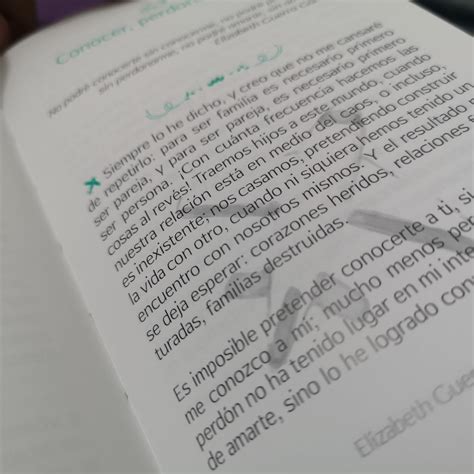 Conocer, perdon
No podré conocerte sin conocerme, no podré
sin perdonarme, no podré amarte sin
Elizabeth Guerra
Siempre lo he dicho, y creo que no me cansaré
de repetirlo: para ser familia es necesario primero
ser pareja, y para ser pareja, es necesario primero
ser persona. ¡Con cuánta frecuencia hacemos las
cosas al revés! Traemos hijos a este mundo, cuando
nuestra relación está en medio del caos, o incluso,
es inexistente; nos casamos, pretendiendo construir
la vida con otro, cuando ni siquiera hemos tenido un
encuentro con nosotros mismos. Y el resultado
se deja esperar: corazones heridos, relaciones
turadas, familias destruidas.
Es imposible pretender conocerte a ti, si
me conozco a mí; mucho menos
perdón no ha tenido lugar en mi
de amarte, sino lo he logrado
Elizabeth